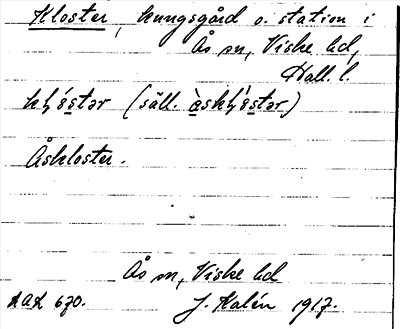 Kloster, kungsgård o. station i
Ås sn, Viske hd,
Hall. l.
(säll.
Åskloster.
Ås sn, Viske hd
LAL 670. J. Kalén 1917.